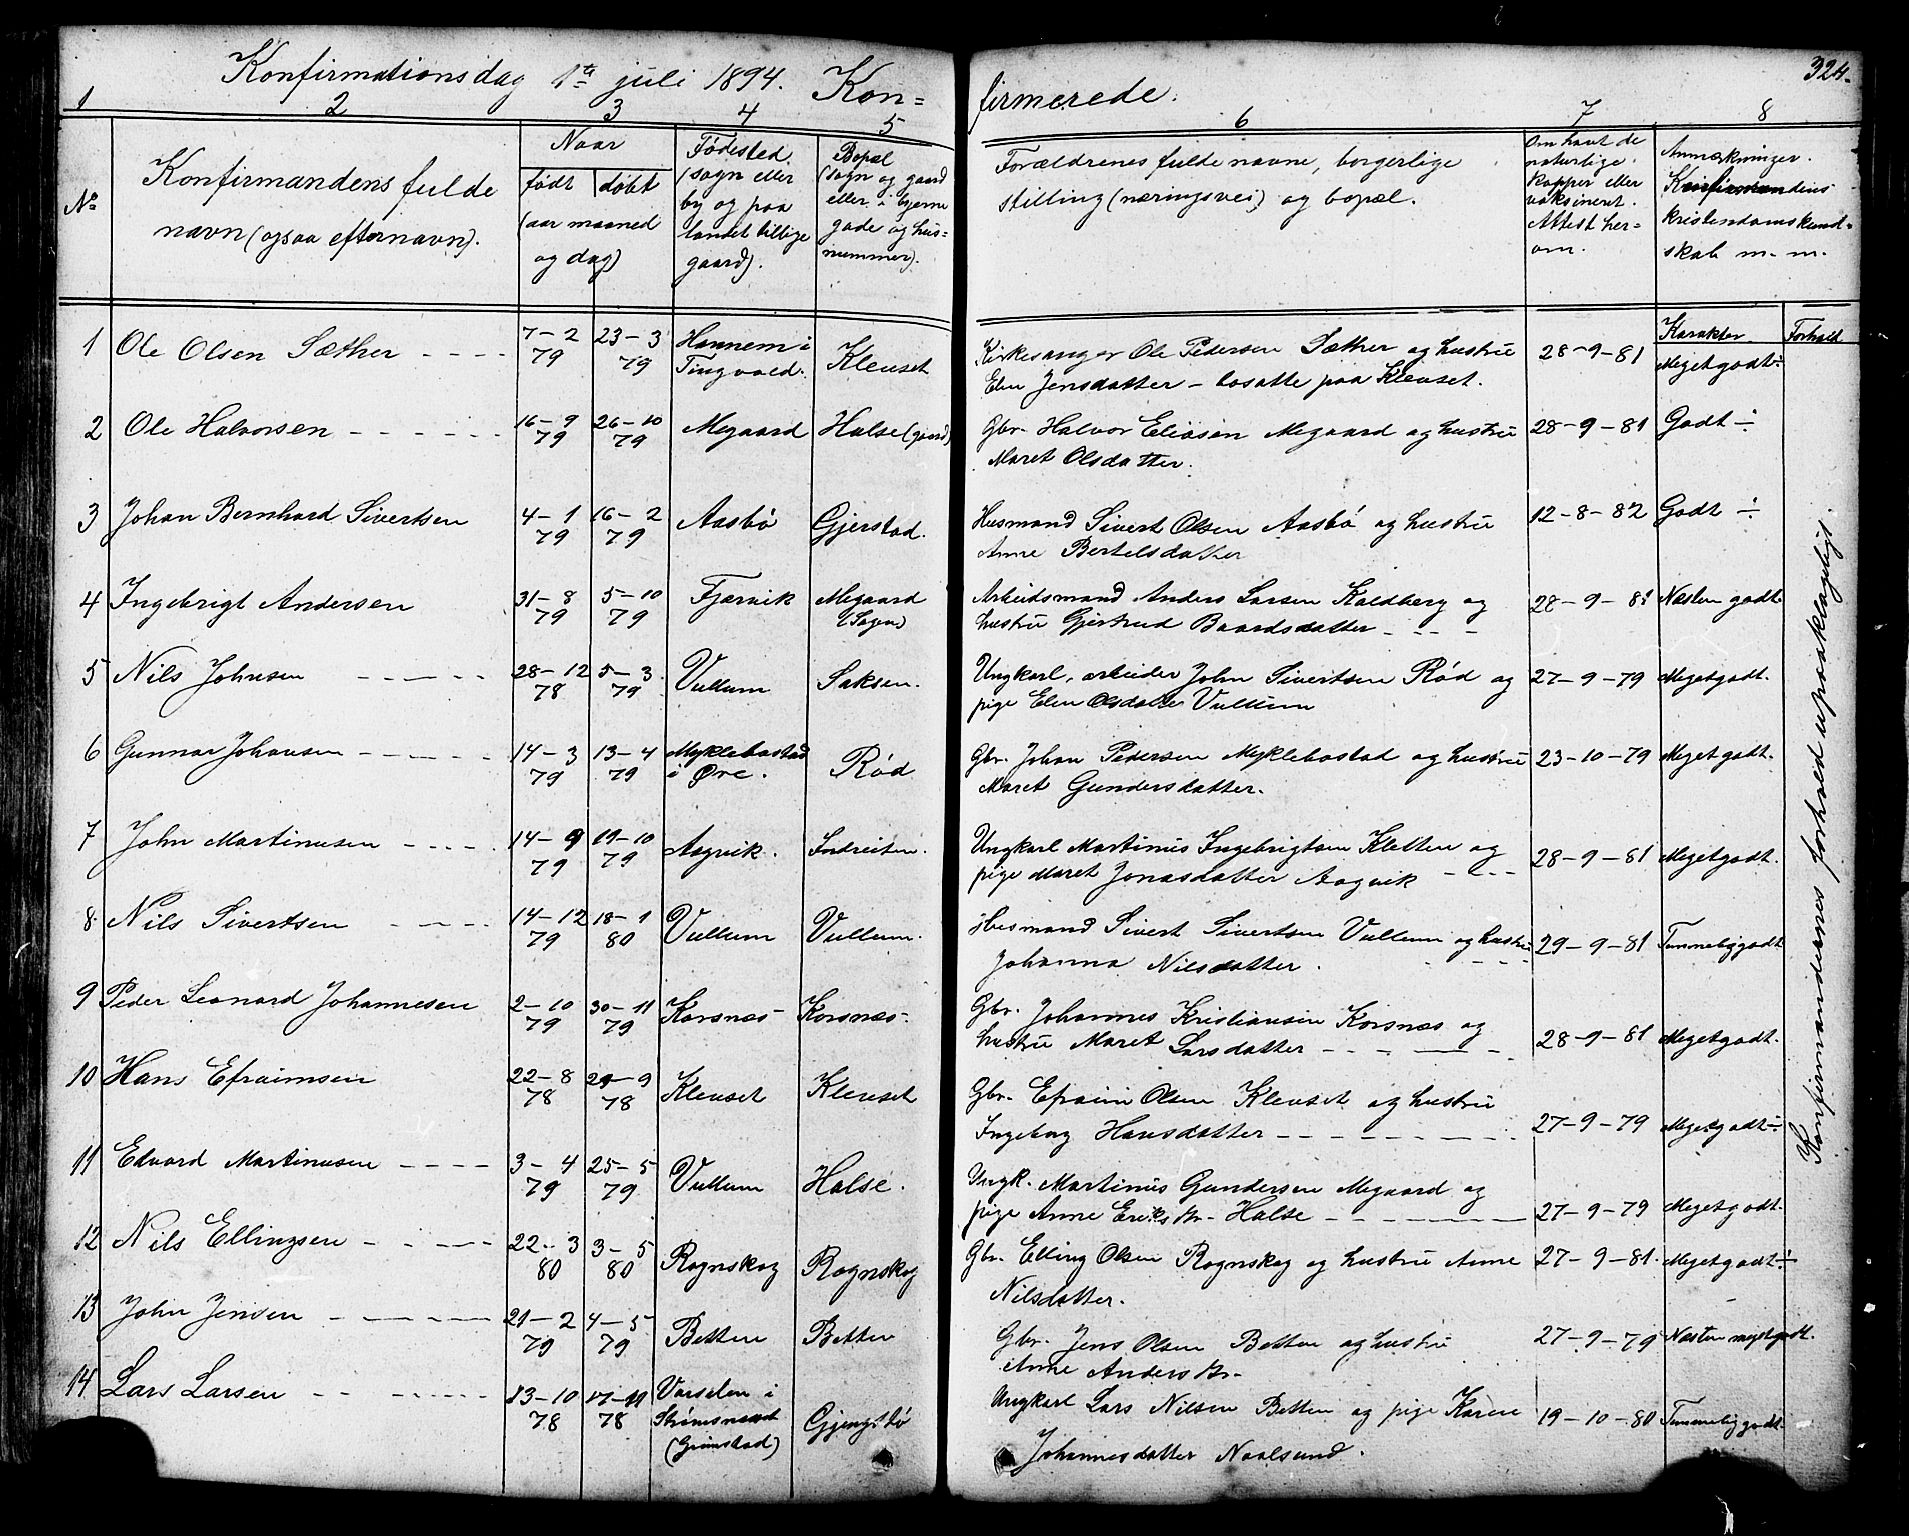 Konfirmationsdag 1ste juli 1894. Kon=
firmerede.
324.
1 2 3 4 5 6 7 8
No
Konfirmandens fulde
navn (ogsaa efternavn).
Naar
født døbt
(aar maaned
og dag)
Fødested.
(sogn eller
by og paa
landet tillige
gaard).
Bopæl
(sogn og gaard
eller i byerne
gade og hus=
nummer).
Forældrenes fulde navne, borgerlige
stilling (næringsvei) og bopæl.
Om havt de
naturlige
kopper eller
vaksineret.
Attest her=
om.
Anmærkninger.
Konfirmandens
kristendomskund=
skab m. m.
Karakter Forhold
1 Ole Olsen Sæther 7-2 79 23-3 79 Hannem i Tingvold. Klevset
Kirkesanger Ole Pedersen Sæther og hustru 28-9-81 Megetgodt ÷
Elen Jensdatter - bosatte paa Klevset.
2 Ole Halvorsen 16-9 79 26-10 79 Megaard Halse (gaard)
Gbr. Halvor Eliasen Megaard og hustru 28-9-81 Godt ÷
Maret Olsdatter.
3 Johan Bernhard Sivertsen 4-1 79 16-2 79 Aasbø Gjerstad.
Husmand Sivert Olsen Aasbø og hustru 12-8-82 Godt ÷
Anne Bertelsdatter
4 Ingebrigt Andersen 31-8 79 5-10 79 Fjærvik Megaard
Arbeidsmand Anders Larsen Kaldberg og 28-9-81 Næsten godt.
hustru Gjertrud Baardsdatter
5 Nils Johnsen 28-12 78 5-3 79 Vullum Saksen.
Ungkarl, arbeider John Sivertsen Rød og 27-9-79 Megetgodt.
pige Elen Olsdatter Vullum
6 Gunnar Johansen 14-3 79 13-4 79 Myklebostad i Øre. Rød
Gbr. Johan Pedersen Myklebostad og hustru 23-10-79 Megetgodt.
Maret Gundersdatter.
7 John Martinusen 14-9 79 19-10 79 Aagvik. Indreiten.
Ungkarl Martinus Ingebrigtsen Kletten og 28-9-81 Megetgodt.
pige Maret Jonasdatter Aagvik
8 Nils Sivertsen 14-12 79 18-1 80 Vullum Vullum.
Husmand Sivert Sivertsen Vullum og hustru 29-9-81 Temmeliggodt
Johanna Nilsdatter.
9 Peder Leonard Johannesen 2-10 79 30-11 79 Korsnæs Korsnæs
Gbr. Johannes Kristiansen Korsnæs og 28-9-81 Megetgodt.
hustru Maret Larsdatter
10 Hans Efraimsen 22-8 78 29-9 78 Klevset Klevset
Gbr. Efraim Olsen Klevset og hustru 27-9-79 Megetgodt ÷
Ingeborg Hansdatter
11 Edvard Martinusen 3-4 79 25-5 79 Vullum Halse.
Ungk. Martinus Gundersen Megaard og 27-9-79 Megetgodt.
pige Anne Eriksdtr. Halse
12 Nils Ellingsen 22-3 80 3-5 80 Rognskog Rognskog
Gbr. Elling Olsen Rognskog og hustru Anne 27-9-81. Megetgodt ÷
Nilsdatter.
13 John Jensen 21-2 79 4-5 79 Betten Betten
Gbr. Jens Olsen Betten og hustru 27-9-79 Næsten megetgodt.
Anne Andersdtr.
14 Lars Larsen 13-10 78 17-11 78 Strømsneset (Grimstad) Gjengstø
Ungkarl Lars Nilsen Betten og pige Karen 19-10-80 Temmeliggodt.
Johannesdatter Naalsund.
Konfirmandernes forhold upaaklageligt.